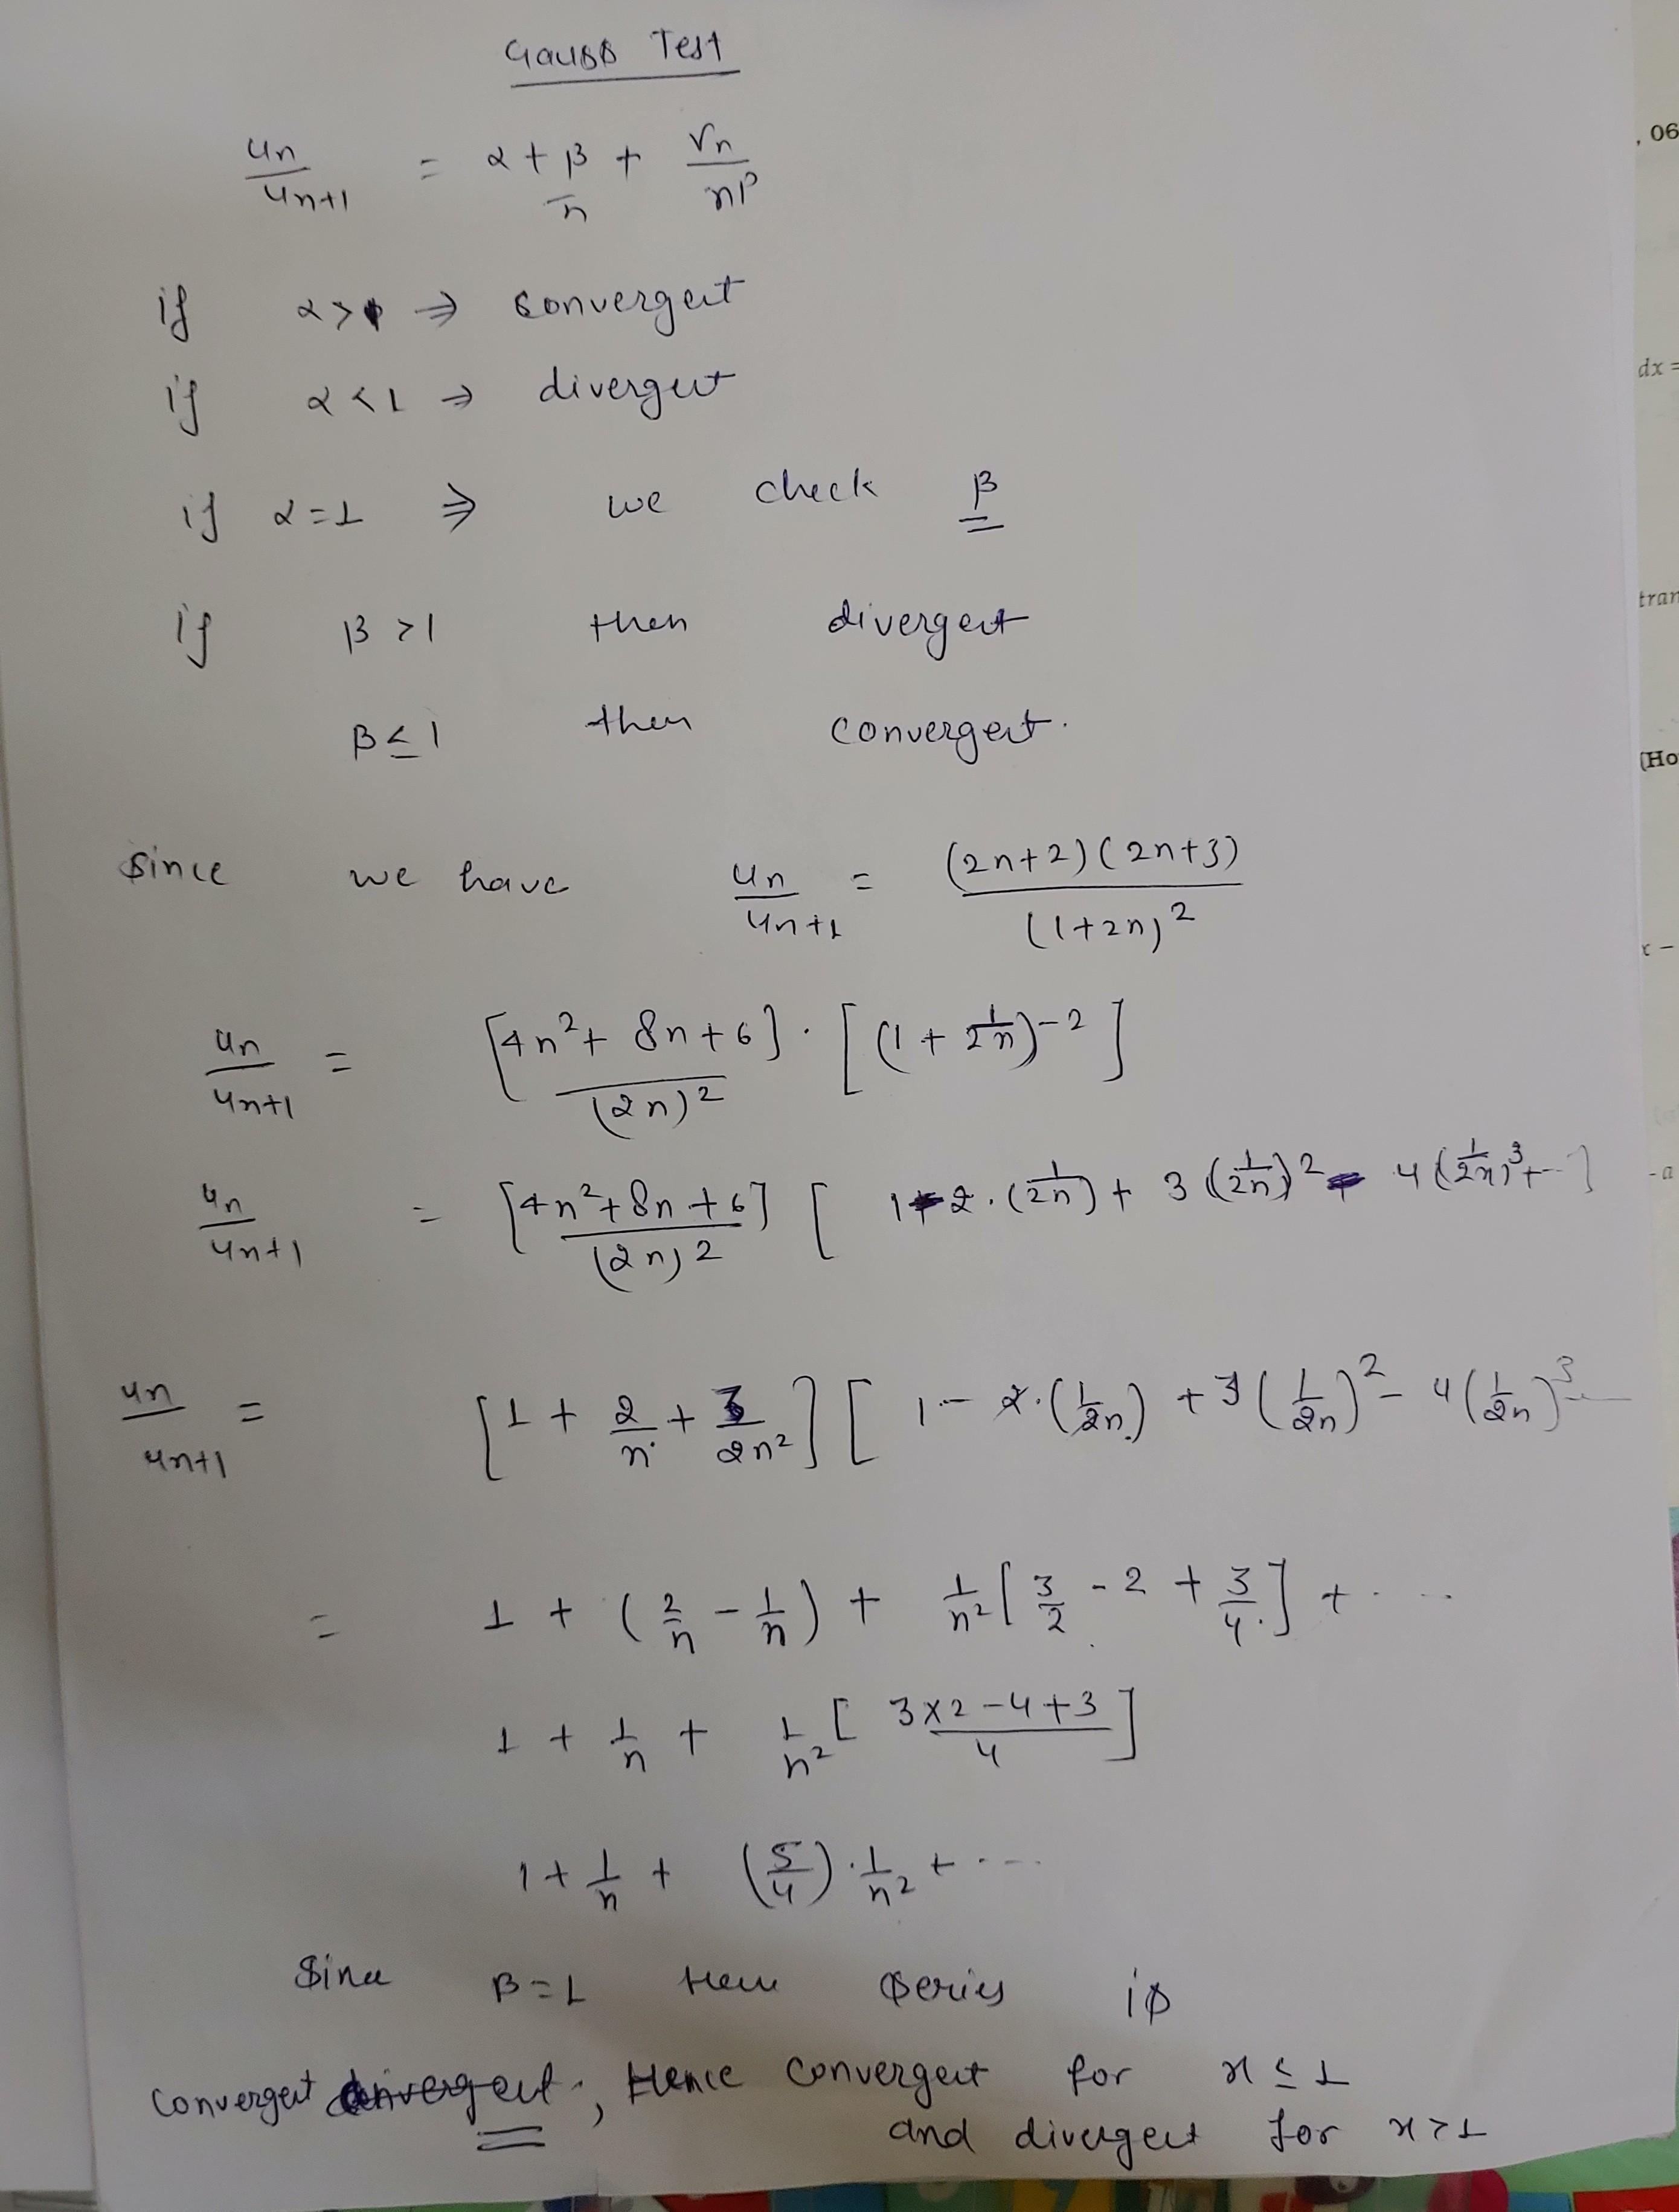 Gauss Test
un/un+1 = α + β/n + rn/n^p
if α > 1 ⇒ convergent
if α < 1 ⇒ divergent
if α = 1 ⇒ we check β
if β > 1 then divergent
β ≤ 1 then convergent.
Since we have un/un+1 = (2n+2)(2n+3)/(1+2n)²
un/un+1 = [4n² + 8n + 6]/(2n)² · [(1 + 1/2n)⁻²]
un/un+1 = [4n² + 8n + 6]/(2n)² [1 - 2·(1/2n) + 3(1/2n)² - 4(1/2n)³ + --]
un/un+1 = [1 + 2/n + 3/2n²] [1 - 2·(1/2n) + 3(1/2n)² - 4(1/2n)³ ---
= 1 + (2/n - 1/n) + 1/n² [3/2 - 2 + 3/4] + ....
1 + 1/n + 1/n² [3×2-4+3/4]
1 + 1/n + (5/4)·1/n² + ....
Since β = 1 then series is
convergent divergent, Hence convergent for x ≤ 1
and divergent for x > 1
, 06
dx =
tran
(Ho
x -
- a